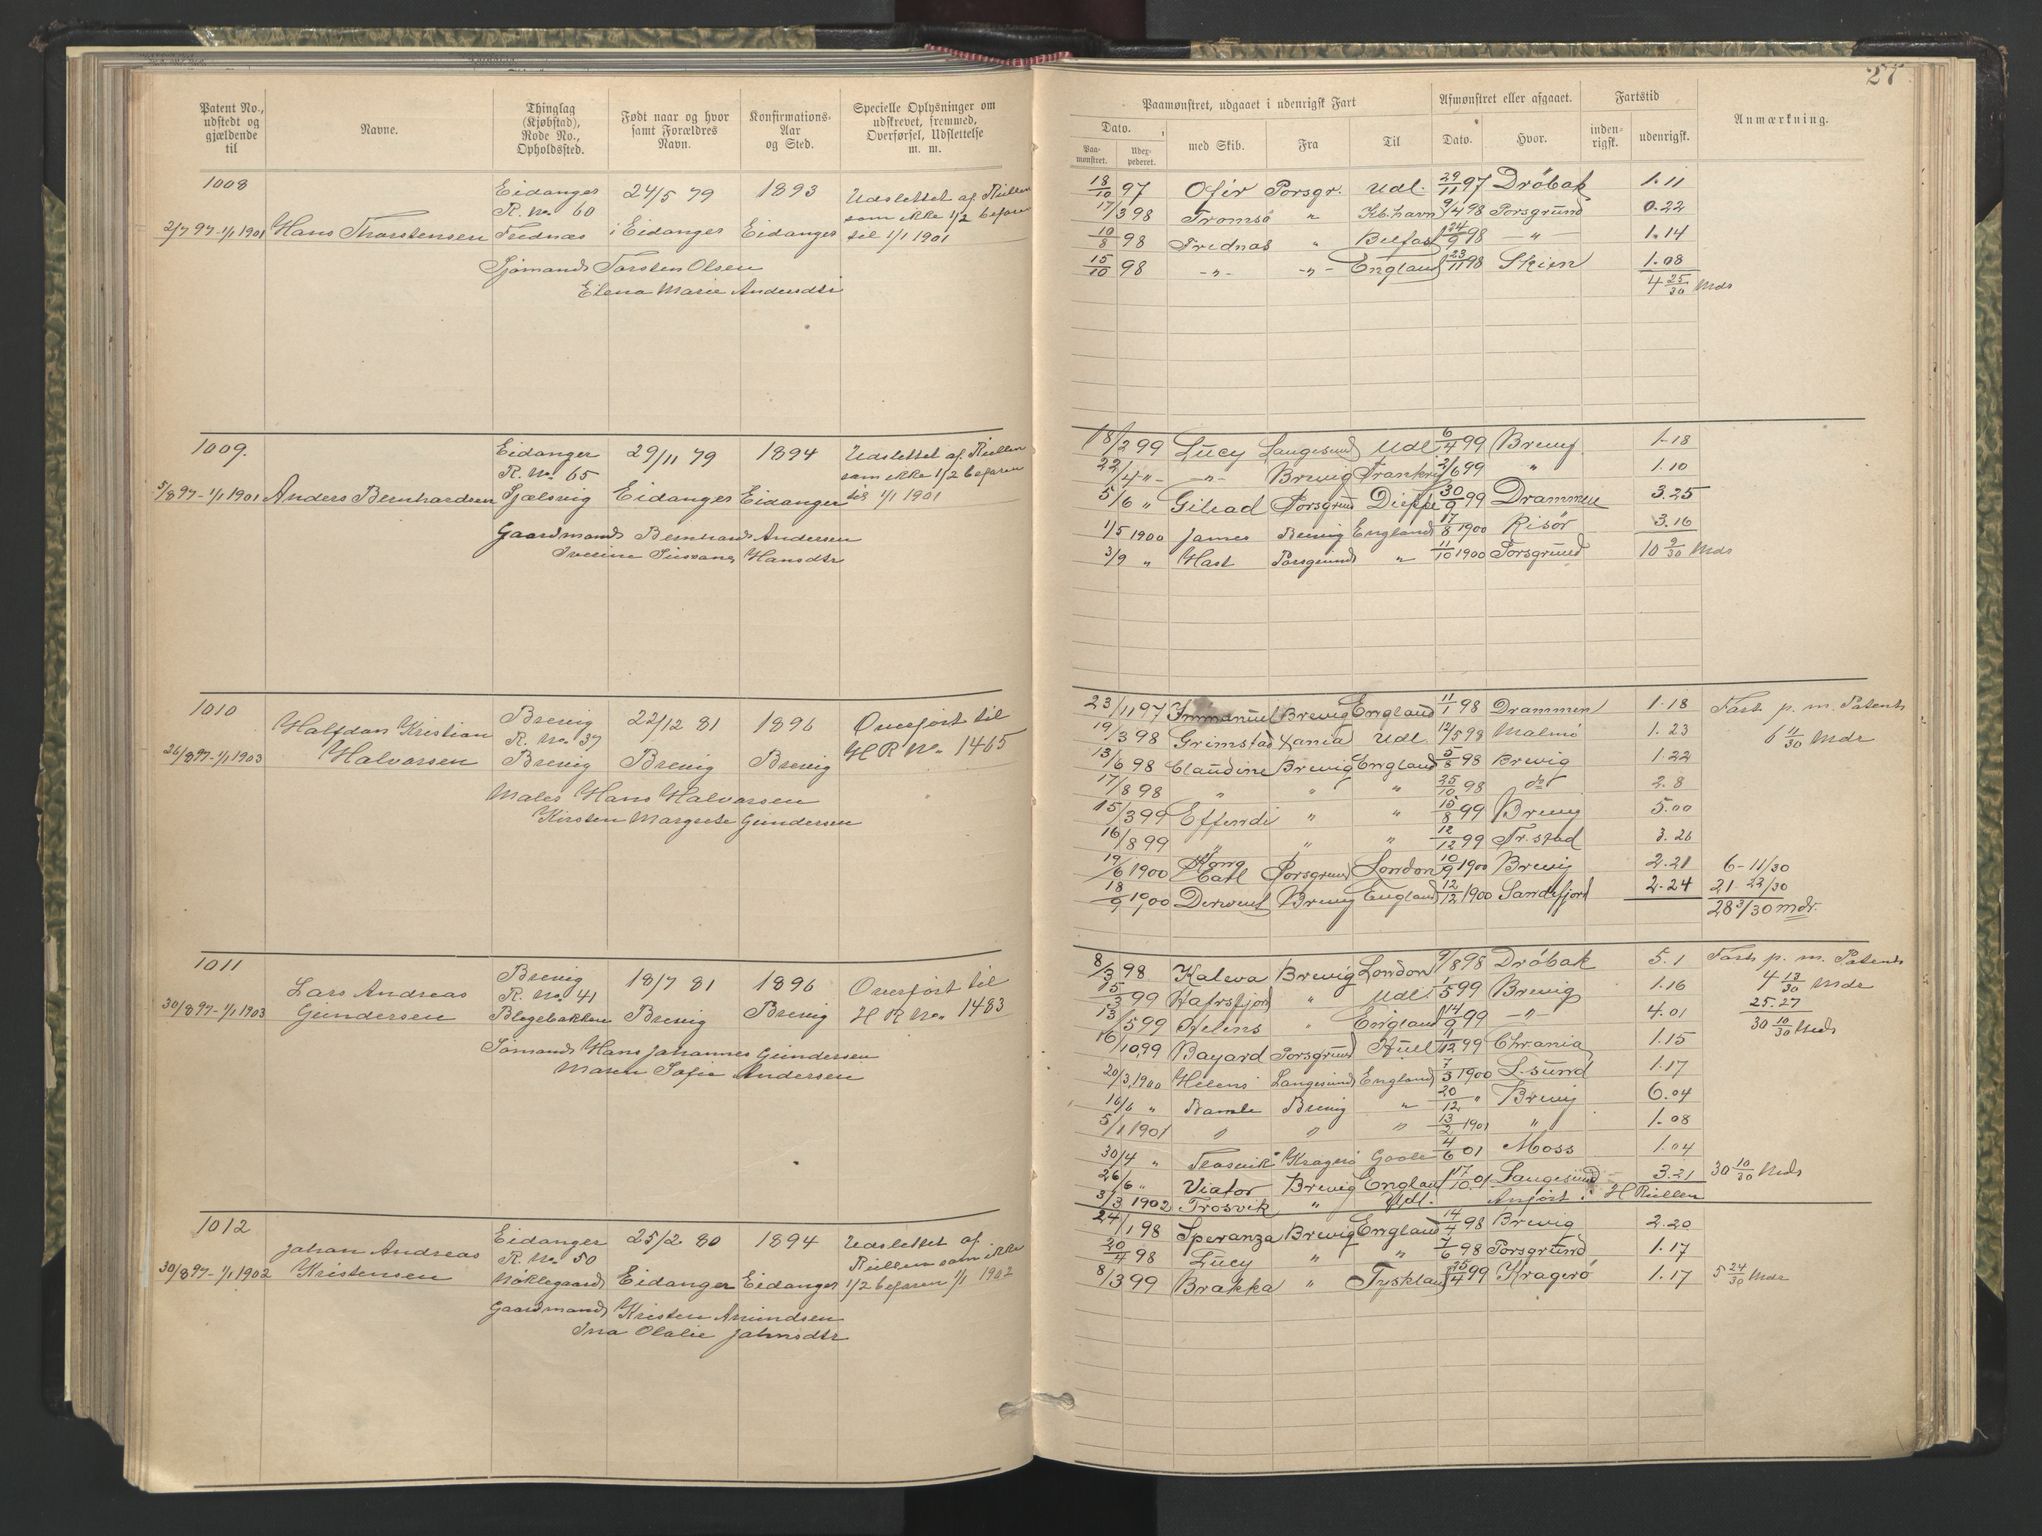 27
Patent No., udstedt og gjældende til
Navne.
Thinglag (Kjøbstad), Rode No., Opholdssted.
Født naar og hvor samt Forældres Navn.
Konfirmations-Aar og Sted.
Specielle Oplysninger om udskrevet, fremmed, Overførsel, Udslettelse m. m.
Paamønstret, udgaaet i udenrigsk Fart
Afmønstret eller afgaaet.
Fartstid
Anmærkning.
Dato.
Paamønstret.
Udexpederet.
med Skib.
Fra
Til
Dato.
Hvor.
indenrigsk.
udenrigsk.
1008
Eidanger 24/5 79 1893 Udslettet af Rullen
R. No. 60 som ikke 1/2 befaren
2/7 97-1/1 1901 Hans Thorstensen Frednæs i Eidanger Eidanger til 1/1 1901
Sjømand Torsten Olsen
Elena Marie Andersdtr
18/10 97 Ofir Porsgr. Udl. 29/11 97 Drøbak 1.11
17/3 98 Tromsø " Kb.havn 9/4 98 Porsgrund 0.22
10/8 98 Frednæs " Belfast 24/9 98 -"- 1.14
15/10 98 -"- -"- England 23/11 98 Skien 1.08
4 25/30 Mdr
1009.
Eidanger 29/11 79 1894 Udslettet af Rullen
R. No. 65 som ikke 1/2 befaren
5/8 97-1/1 1901 Anders Bernhardsen Sjælsvig Eidanger Eidanger til 1/1 1901
Gaardmand Bernhard Andersen
Hansdtr
18/2 99 Lucy Langesund Udl 6/4 99 Brevig 1-18
22/4 "- -"- Brevig Frankrig 2/6 99 " 1.10
5/6 " Gilead Porsgrund Dieppe 30/9 99 Drammen 3.25
1/5 1900 James Brevig England 17/8 1900 Risør 3.16
3/9 " Hast Porsgrund " 11/10 1900 Porsgrund 10 9/30 Mdr
1010
Halfdan Kristian Brevig 22/12 81 1896 Overført til
R. No. 37 H R No. 1465
26/8 97-1/1 1903 Halvorsen Brevig Brevig Brevig
Maler Hans Halvorsen
Kirsten Margrete Gundersen
23/11 97 Immanuel Brevig England 11/1 98 Drammen 1.18 Fart p. m. Patent
19/3 98 Grimstad Xania Udl. 12/5 98 Malmø 1.23 6 11/30 Mdr
13/6 98 Claudine Brevig England 5/8 98 Brevig 1.22
17/8 98 " " " 25/10 98 do 2.8
15/3 99 Effendi " " 15/8 99 Brevig 5.00
16/8 99 " " " 12/12 99 Fr.stad 3.26
19/6 1900 Kong Carl Porsgrund London 10/9 1900 Brevig 2.21 6-11/30
18/9 1900 Derwent Brevig England 12/12 1900 Sandefjord 2.24 21-22/30
28 3/30 mdr.
1011
Lars Andreas Brevig 18/7 81 1896 Overført til
R. No. 41 H R No. 1483
30/8 97-1/1 1903 Gundersen Blegebakken Brevig Brevig
Sømand Hans Johannes Gundersen
Maren Sofie Andersen
8/3 98 Kaleva Brevig London 9/8 98 Drøbak 5.1 Fart p. m. Patent
15/3 99 Hafrsfjord " Udl. 1/5 99 Brevig 1.16 4 13/30 Mdr
13/5 99 Helios " England 14/9 99 -"- 4.01 25.27
16/10 99 Bayard Porsgrund Hull 11/12 99 Chr.ania 1.15 30 10/30 Mdr
20/3 1900 Helios Langesund England 7/3 1900 L.sund 1.17
16/6 " Bamle Brevig " 20/12 " Brevig 6.04
5/1 1901 " " " 13/2 1901 " 1.08
30/4 " Frosvik Kragerø Goole 4/6 01 Moss 1.04
26/6 " Viator Brevig England 17/10 01 Langesund 3.21 30 10/30 Mdr
3/3 1902 Trosvik " Udl. Anført i H Rullen
1012
Johan Andreas Eidanger 25/2 80 1894 Udslettet af
R. No. 50 Rullen som ikke
30/8 97-1/1 1902 Kristensen Nøklegaard Eidanger Eidanger 1/2 befaren 1/1 1902
Gaardmand Kristen Amundsen
Ina Olalie Johnsdtr
24/1 98 Speranza Brevig England 14/4 98 Brevig 2.20
20/4 98 Lucy " " 7/6 98 Porsgrund 1.17
8/3 99 Brakka " Tyskland 25/4 99 Kragerø 1.17 5 24/30 Mdr